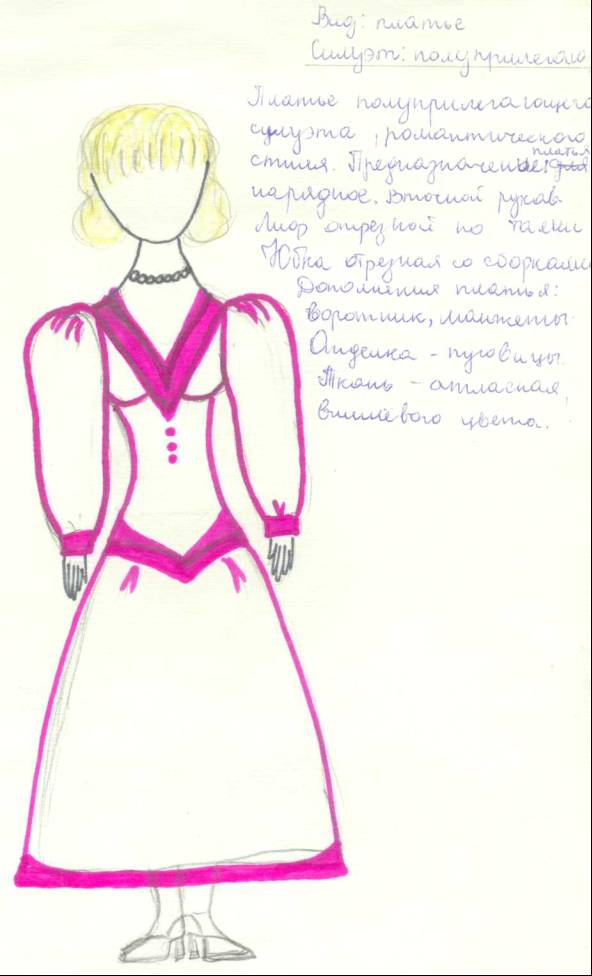 Вид: платье
Силуэт: полуприлегающ
Платье полуприлегающего
силуэта, романтического
стиля. Предназначение платья:
нарядное. Втачной рукав.
Лиф отрезной по талии
Юбка отрезная со сборками
Дополнения платья:
воротник, манжеты.
Отделка - пуговицы.
Ткань - атласная,
вишнёвого цвета.